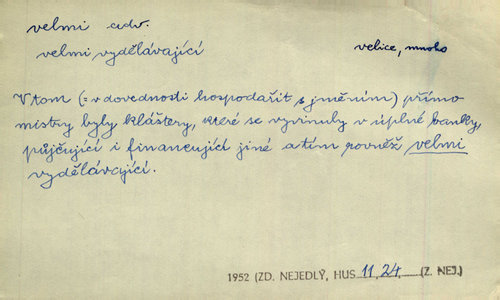 velmi adv.
velmi vydělávající
velice, mnoho
V tom (= v dovednosti hospodařit s jměním) přímo
mistry byly kláštery, které se vyvinuly v úplné banky,
půjčující i financující jiné a tím rovněž velmi
vydělávající.
1952 (ZD. NEJEDLÝ, HUS 11, 24, (Z. NEJ.)